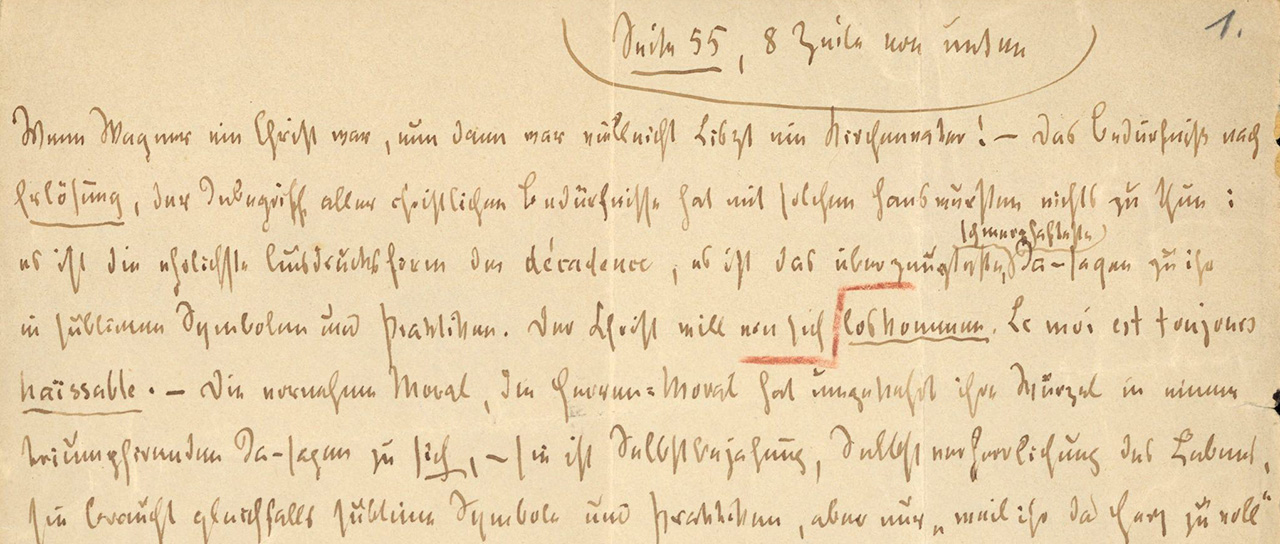 1.
Seite 55, 8 Zeile von unten
Wenn Wagner ein Christ war, nun dann war vielleicht Liszt ein Kirchenvater! — Das Bedürfniß nach
Erlösung, der Inbegriff aller christlichen Bedürfnisse hat mit solchen Hanswursten nichts zu thun:
schmerzhafteste
es ist die ehrlichste Ausdrucksform der décadence, es ist das überzeugteste, Ja-sagen zu ihr
in sublimen Symbolen und Praktiken. Der Christ will von sich loskommen. Le moi est toujours
haïssable. — Die vornehme Moral, die Herren-Moral hat umgekehrt ihre Wurzel in einem
triumphirenden Ja-sagen zu sich, — sie ist Selbstbejahung, Selbstverherrlichung des Lebens,
sie braucht gleichfalls sublime Symbole und Praktiken, aber nur „weil ihr das Herz zu voll“